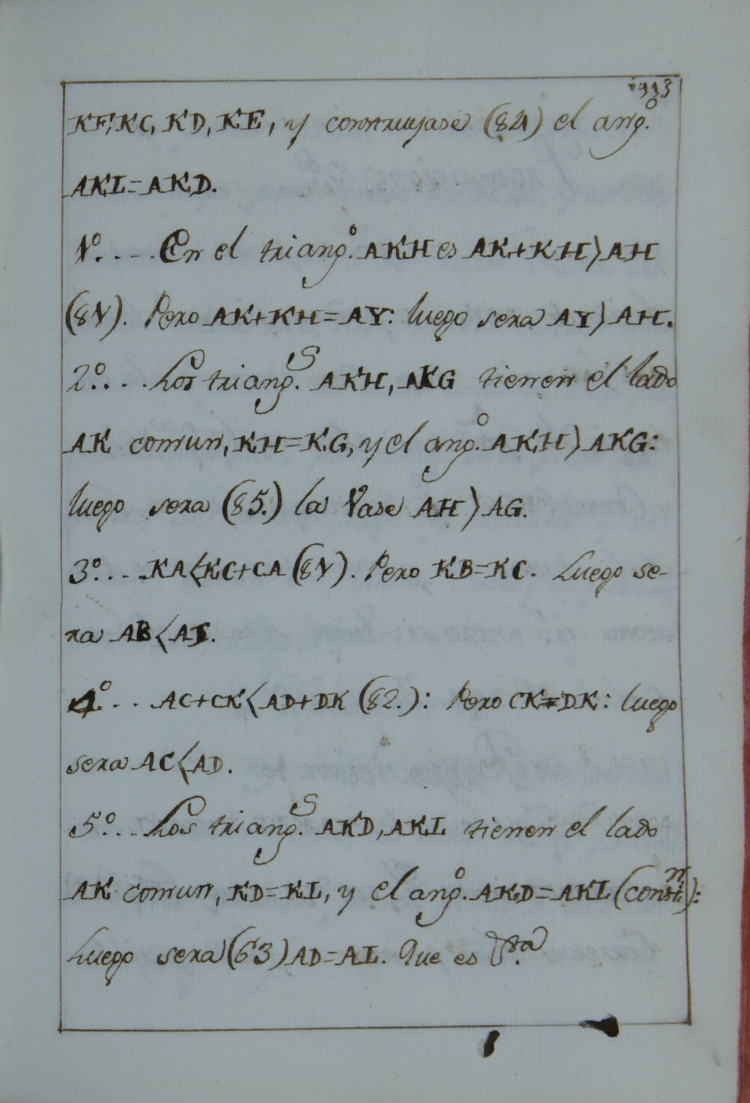 113
KF, KC, KD, KE, y construyase (84) el ang.º
AKL=AKD.
1º.... En el triang.º AKH es AK+KH>AH
(81). Pero AK+KH=AY: luego sera AY>AH.
2º... Los triang.S AKH, AKG tienen el lado
AK comun, KH=KG, y el ang.º AKH>AKG:
luego sera (85.) la Vase AH>AG.
3º... KA<KC+CA (81). Pero KB=KC. Luego se-
ra AB<AC.
4º... AC+CK<AD+DK (82.): Pero CK=DK: luego
sera AC<AD.
5º... Los triang.S AKD, AKL tienen el lado
AK comun, KD=KL, y el ang.º AKD=AKL (const.n):
Luego sera (63) AD=AL. Que es